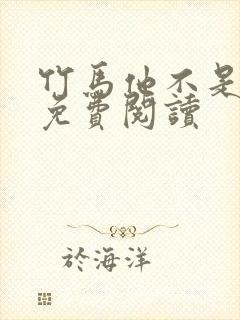 竹馬他不是
免費閱讀
於海洋